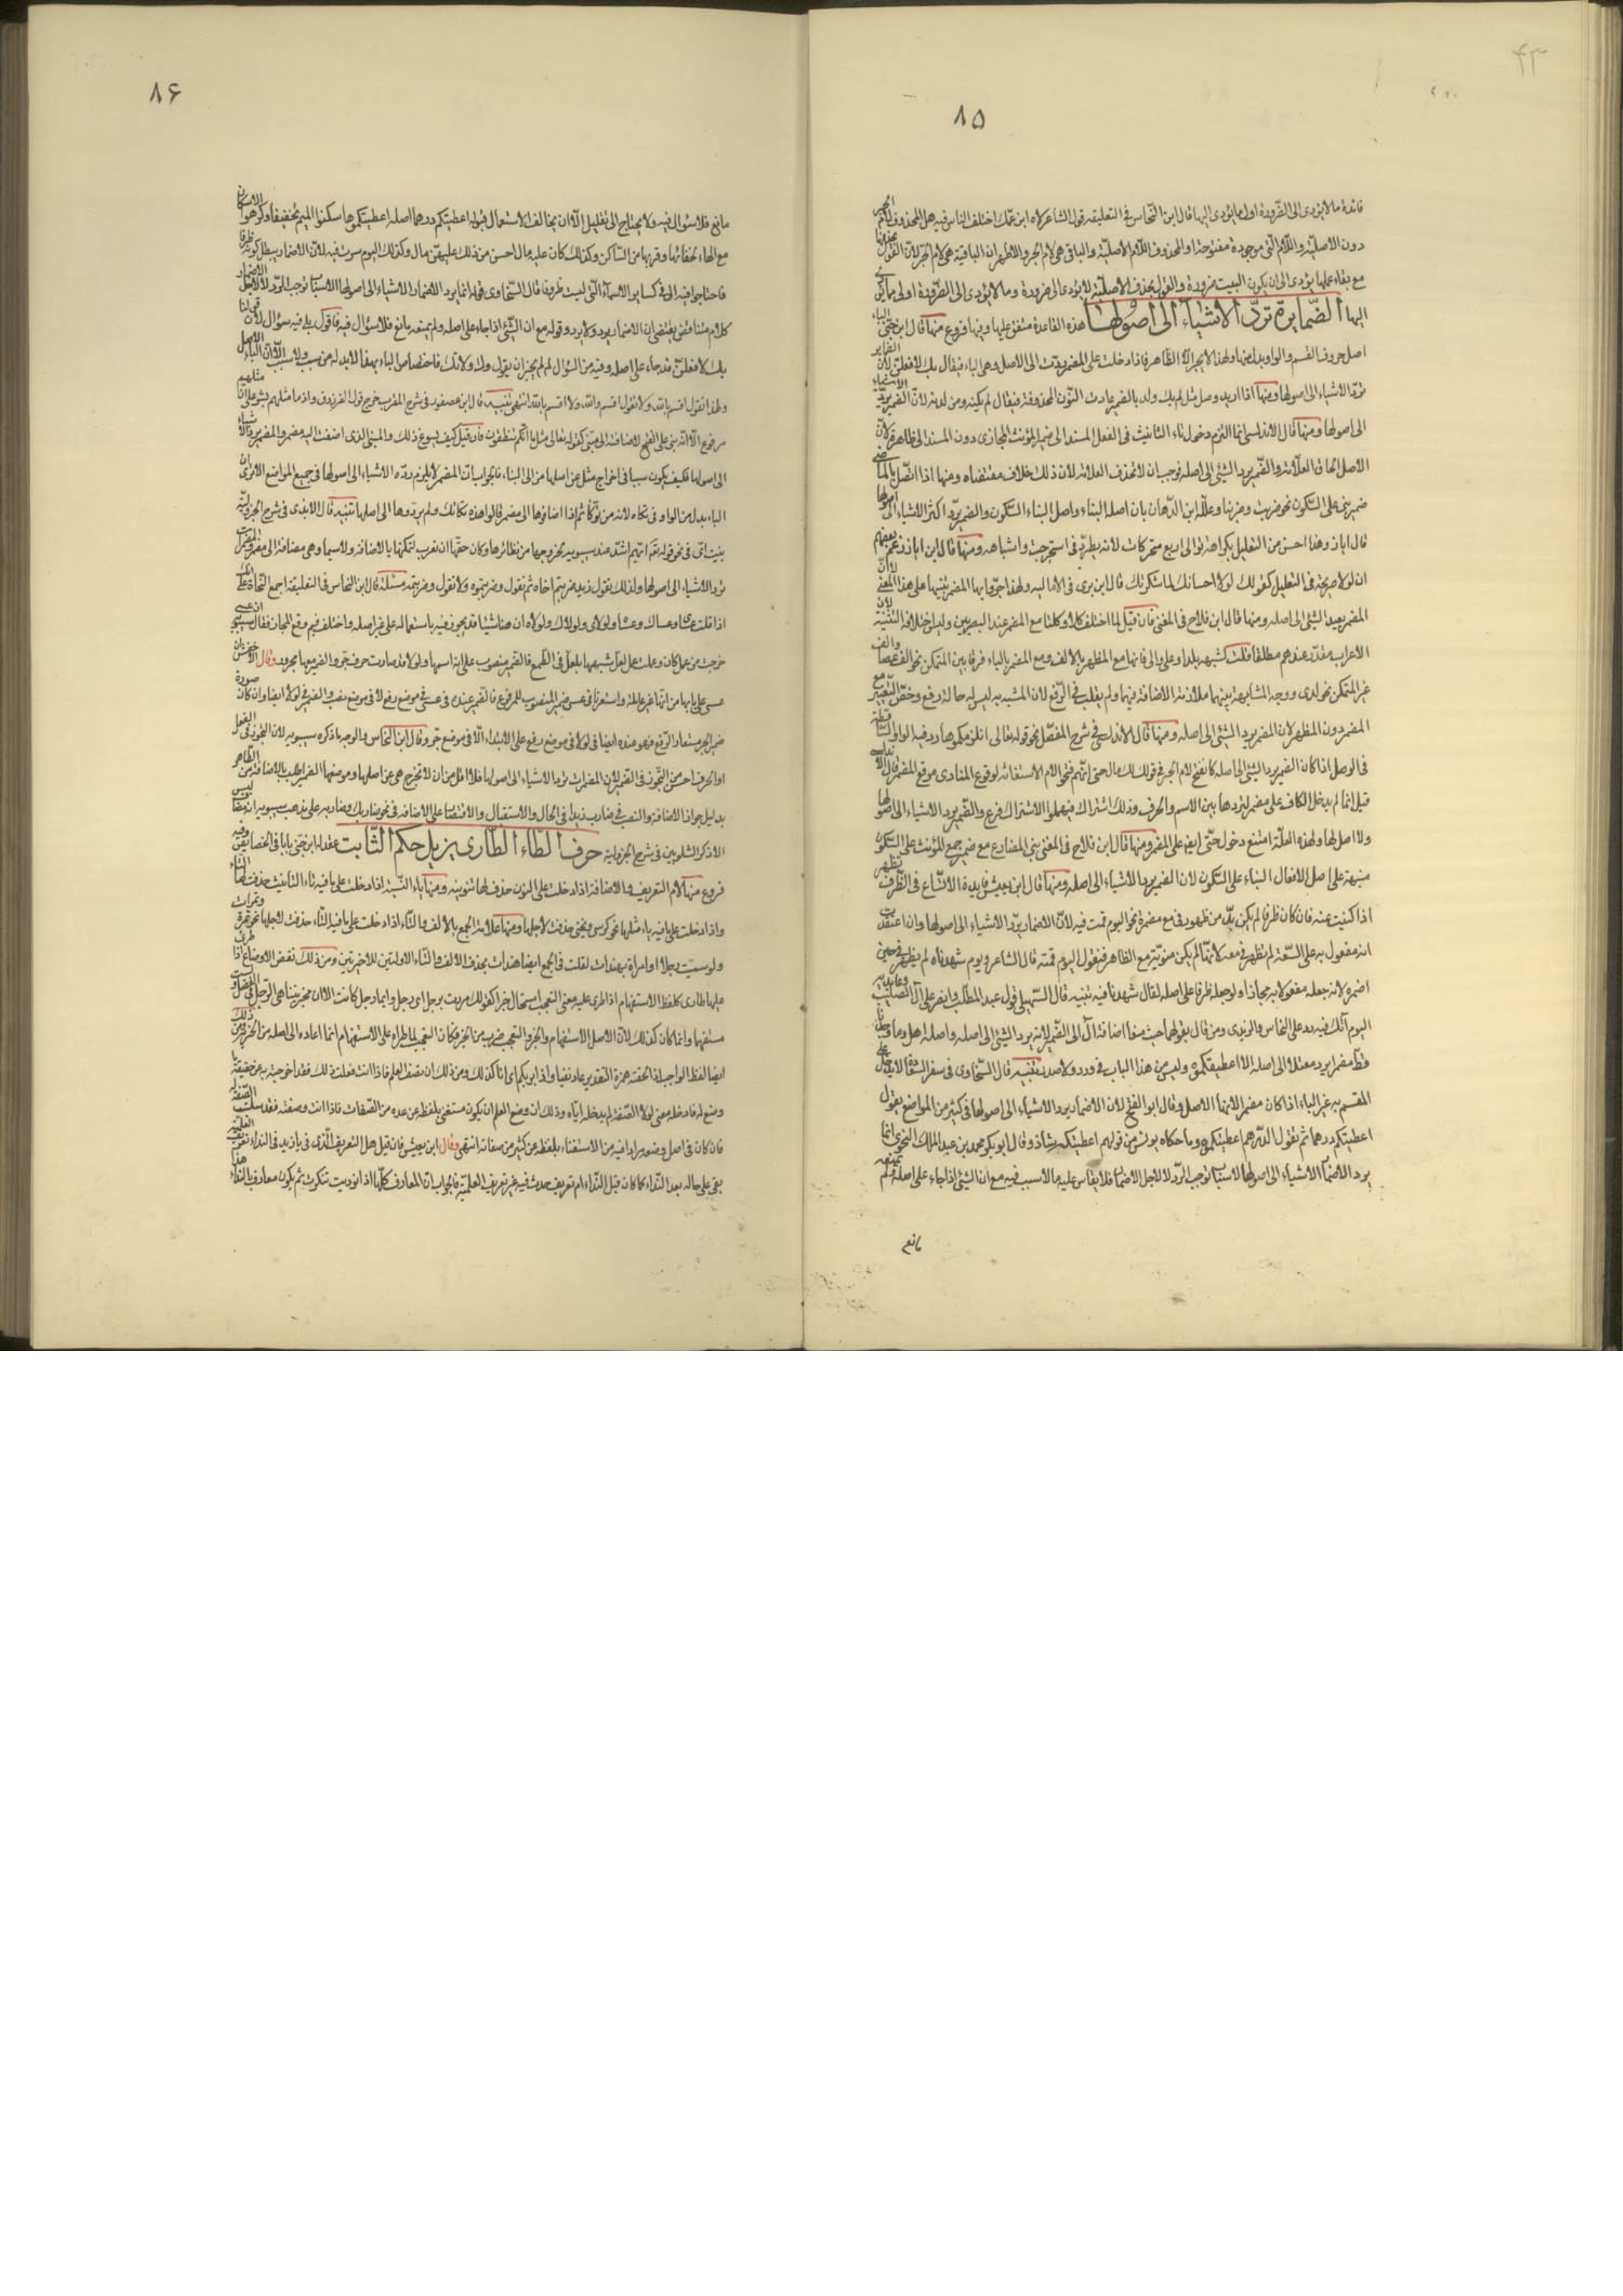 ۸۵
فائدة ما لا يؤدى الى الضرورة اولى مما يؤدى اليها قال ابن النحاس فى التعليقة قول الشاعر لاه ابن عمك اختلف الناس فيه هل المحذوف لام الجر
دون الاصلية واللام التى موجودة مفتوحة او المحذوف اللام الاصلية والباقى هى لام الجر والاظهر ان الباقية هى لام الجر لان القول بحذفها
مع بقاء عملها يؤدى الى ان يكون البيت ضرورة والقول بحذف الاصلية لا يؤدى الى ضرورة وما لا يؤدى الى الضرورة اولى مما يؤدى
اليها الضماير ترد الاشياء الى اصولها هذه القاعدة متفق عليها وفيها فروع منها قال ابن جنى الباء
اصل حروف القسم والواو بدل منها ولهذا لا يجر الا الظاهر فاذا دخلت على المضمر ردت الى الاصل وهى الباء فيقال بك لافعلن لان الضماير
ترد الاشياء الى اصولها ومنها اذا اريد وصل مثل لم يك ولد بالضمير عادت النون المحذوفة فيقال لم يكنه ومن لدنه لان الضمير يرد الاشياء
الى اصولها ومنها قال الاندلسى انما التزم دخول تاء التانيث فى الفعل المسند الى ضمير المؤنث المجازى دون المسند الى ظاهره لان
الاصل الحاق العلامة والضمير يرد الشئ الى اصله فوجب ان لا تحذف العلامة لان ذلك خلاف مقتضاه ومنها اذا اتصل بالماضى
ضمير بنى على السكون نحو ضربت وضربنا وعلله ابن الدهان بان اصله البناء واصل البناء السكون والضمير يرد اكثر الاشياء الى اصولها
قال اباز وهذا احسن من التعليل بكراهة توالى اربع متحركات لانه يطرد فى استخرجت واشباهه ومنها قال ابن اباز زعم بعضهم
ان لولا صريحة فى التعليل كقولك لولا احسانك لما شكرتك قال ابن برى فى اماليه ولهذا جروا بها المضمر تنبيها على هذا المعنى لان
المضمر يعيد الشئ الى اصله ومنها قال ابن فلاح فى المغنى فان قيل لما اختلف كلا وكلتا مع المضمر عند البصريين وليس اختلافه لتثنية لان
الاعراب مقدر عندهم مطلقا قلت لشبهه بلدا وعلى والى فانها مع المظهر بالالف ومع المضمر بالياء فرقا بين المتمكن نحو الف عصا والف
غير المتمكن نحو لدى ووجه المشابهة بينهما ملازمة الاضافة فيهما ولم يقلب فى الرفع لان المشبه به ليس له حالة رفع وخص التغيير مع
المضمر دون المظهر لان المضمر يرد الشئ الى اصله ومنها قال الاندلسى فى شرح المفصل نحو قوله تعالى انلزمكموها رد فيه الواو الساقطة
فى الوصل اذا كان الضمير يرد الشئ الى اصله كما تفتح لام الجر فى قولك لك مال حتى انهم فتحوا لام الاستغاثة لوقوع المنادى موقع المضمر قال
قيل انما لم يدخل الكاف على مضمر لترددها بين الاسم والحرف وذلك اشتراك فيهما والاشتراك فرع والضمير يرد الاشياء الى اصولها
ولا اصل لها ولهذه العلة امتنع دخول حتى ايضا على المضمر ومنها قال ابن فلاح فى المغنى بنى المضارع مع ضمير جمع المؤنث على السكون
منبهة على اصل الافعال البناء على السكون لان الضمير يرد الاشياء الى اصله ومنها قال ابن يعيش فايدة الاتساع فى الظرف تظهر
اذا كنيت عنه فان كان ظرفا لم يكن بد من ظهور فى مع مضمره نحو اليوم قمت فيه لان الاضمار يرد الاشياء الى اصولها وان اعتقدت
انه مفعول به على السعة لم تظهر فى معه لانها لم يكن منوية مع الظاهر فنقول اليوم قمته قال الشاعر ويوم شهدناه لم يظهر فى حين
اضمره لانه جعله مفعولا به مجازا ولو جعله ظرفا على اصله لقال شهدنا فيه تنبيه قال السهيلى قول عبد المطلب وانصر على آل الصليب وعابديه
اليوم آلك فيه رد على النحاس والزبيدى ومن قال بقولهما حيث منعا اضافة آل الى الضمير لانه يرد الشئ الى اصله واصله اهل وما وجدنا
قط مضمرا يرد معتلا الى اصله الا اعطيتكموه وليس من هذا الباب فى ورد ولا صدر تنبيه قال السخاوى فى سفر السعادة لا يدخل على
المقسم به غير الباء اذا كان مضمرا لانها الاصل وقال ابو الفتح لان الاضمار يرد الاشياء الى اصولها فى كثير من المواضع يقول
اعطيتكم درهما ثم تقول الدرهم اعطيتكموه وما حكاه يونس من قولهم اعطيتكمه شاذ وقال ابو بكر محمد بن عبد الملك النحوى انما
يرد الاضمار الاشياء الى اصولها لاسباب توجب الرد لا لاجل الاضمار فلا يقاس عليه ما لا سبب فيه مع ان الشئ اذا جاء على اصله فلم يمنعه
مانع
۸۶
مانع فلا سؤال فيه ولا يحتاج الى تعليل الا ان يخالف الاستعمال فقوله اعطيتكم درهما اصله اعطيتكموها سكنوا الميم تخفيفا وكرهوا الاسكان
مع الهاء لخفائها وقربها من الساكن وكذلك كان عليه مال احسن من ذلك عليهى مال وكذلك اليوم سرت فيه لان الاضمار يبطل كونه ظرفا
فاحتاجوا فيه الى فى كساير الاسماء التى ليست ظروف قال السخاوى فقوله انما يرد الاضمار الاشياء الى اصولها لاسباب توجب الرد لا لاجل الاضمار
كلام متناقض يقتضى ان الاضمار يرد ولا يرد وقوله مع ان الشئ اذا جاء على اصله ولم يمنعه مانع فلا سؤال فيه فاقول بلى فيه سؤال لان قولنا
بك لافعلن قد جاء على اصله وفيه من السؤال لم لم يجز ان يقول وك ولا تك فاختصاص الباء بهذا لا بد له من سبب ولا سبب الا ان الباء الاصل
ولهذا تقول اقسم بالله ولا تقول اقسم والله ولا اقسم تالله انتهى تنبيه قال ابن عصفور فى شرح المقرب خرج قول الفرزدق واذ ما مثلهم بشر على ان مثلهم
مرفوع الا انه بنى على الفتح لاضافته الى مبنى كقوله تعالى مثل ما انكم تنطقون فان قيل كيف يسوغ ذلك والمبنى الذى اضفت اليه مضمر والمضمر يرد الاشياء
الى اصولها فكيف يكون سببا فى اخراج مثل عن اصلها من الى البناء فالجواب ان المضمر لا يلزم رده الاشياء الى اصولها فى جميع المواضع الا ترى ان
التاء بدل من الواو فى تكاه لانه من توكأ ثم اذا اضافوها الى مضمر قالوا هذه تكأتك ولم يردوها الى اصلها تنبيه قال الابذى فى شرح الجزولية
بنيت اى فى نحو قوله ثم ايهم اشد عند سيبويه لخروجها من نظائرها وكان حقها ان تعرب لتمكنها بالاضافة ولاسيما وهى مضافة الى مضمر والمضمرات
ترد الاشياء الى اصولها ولذلك تقول زيد ضربتم اخاه ثم تقول ضربتموه ولا تقول ضربتمه مسئلة قال ابن النحاس فى التعليقة اجمع النحاة على انك
اذا قلت عساى وعساك وعساه ولولاى ولولاك ولولاه ان هنا شيئا قد تجوز فيه باستعماله على غير اصله واختلف فيم وقع المجاز فقال سيبويه ان عسى
خرجت من عمل كان وعملت عمل لعل لشبهها بلعل فى الطمع فالضمير منصوب على انه اسمها ولولا قد صارت حرف جر والضمير معها مجرور وقال الاخفش ان
عسى على بابها من انها غير عاملة واستعرنا فى عسى ضمير المنصوب للمرفوع فالضمير عنده فى عسى فى موضع رفع لا فى موضع نصب والضمير فى لولا ايضا وان كان صورة
ضمير الجر مستعار للرفع فهو عنده ايضا فى لولا فى موضع رفع على الابتداء لا فى موضع جر وقال ابن النحاس والوجه ما ذكره سيبويه لان التجوز فى الفعل
او الحرف احسن من التجوز فى الضمير لان المضمرات ترد الاشياء الى اصولها فلا اقل من ان لا تخرج هى عن اصلها وموضعها الضمير اطلب بالاضافة من الظاهر
بدليل جواز الاضافة والنصب فى ضارب زيد فى الحال والاستقبال والاقتصار على الاضافة فى نحو ضاربك وضاربه على مذهب سيبويه
الا ذكر الشلوبين فى شرح الجزولية حرف الطاء الطارى يزيل حكم الثابت عقد له ابن جنى بابا فى الخصايص وفيه
فروع منها لام التعريف والاضافة اذا دخلت على المنون حذف لها تنوينه ومنها ياء النسبة اذا دخلت على ما فيه تاء التانيث حذفت لها التاء
واذا دخلت على ما فيه ياء مثلها نحو كرسى وبختى حذفت لاجلها ومنها علامة الجمع بالالف والتاء اذا دخلت على ما فيه التاء حذفت لاجلها نحو تمرة وتمرات
ولو سميت رجلا او امراة بهندات لقلت فى الجمع ايضا هندات بحذف الالف والتاء الاوليين للاخريين ومن ذلك نقض الاوضاع اذا طرى
عليها طارى كلفظ الاستفهام اذا طرى عليه معنى التعجب استحال خبرا كقولك مررت برجل اى رجل وايما رجل كانت الان مخبر بتناهى الرجل فى الفضل ولست
مستفهما وانما كان كذلك لان الاصل الاستفهام والخبر والتعجب ضرب من الخبر فكان التعجب لما طرا على الاستفهام انما اعاده الى اصله من الخبر ومن ذلك
ايضا لفظ الواجب اذا لحقته همزة التقرير عاد نفيا واذا
وضع له فادخله معنى لولا الصفة لم يدخله اياه وذلك ان وضع العلم ان يكون مستغنى بلفظه عن عدة من الصفات فاذا انت وصفته فقد سلبت الصفة له
فان كان فى اصل وضعه مرادا فيه من الاستغناء بلفظه عن كثير من صفاته انتهى وقال ابن يعيش فان قيل هل التعريف الذى فى يا زيد فى النداء تعريف العلمية
بقى على حاله بعد النداء كما كان قبل النداء ام تعريف حدث فيه غير تعريف العلمية فالجواب ان المعارف كلها اذا نوديت تنكرت ثم يكون معارف بالنداء هذا